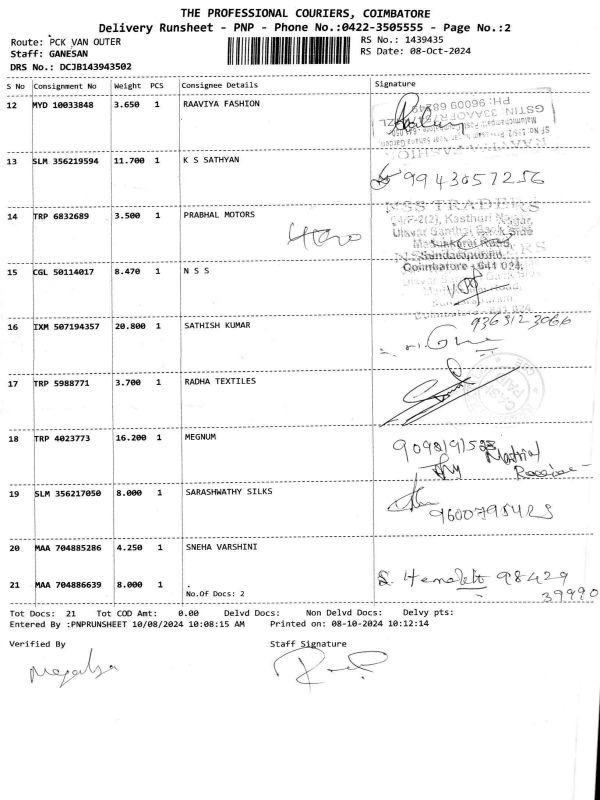 THE PROFESSIONAL COURIERS, COIMBATORE
Delivery Runsheet - PNP - Phone No.:0422-3505555 - Page No.:2
Route: PCK VAN OUTER
RS No.: 1439435
Staff: GANESAN
RS Date: 08-Oct-2024
DRS No.: DCJB143943502
S No Consignment No Weight PCS Consignee Details Signature
12 MYD 10033848 3.650 1 RAAVIYA FASHION
PH: 96009 68249
13 SLM 356219594 11.700 1 K S SATHYAN
9943057256
14 TRP 6832689 3.500 1 PRABHAL MOTORS
NSS TRADERS
Kasthuri Nagar,
Ulavar Santhai Back Side
Masakkarai Road,
Sundarapuram,
Coimbatore - 641 024.
Hero
15 CGL 50114017 8.470 1 N S S
16 IXM 507194357 20.800 1 SATHISH KUMAR
9363123066
17 TRP 5988771 3.700 1 RADHA TEXTILES
18 TRP 4023773 16.200 1 MEGNUM
19 SLM 356217050 8.000 1 SARASHWATHY SILKS
20 MAA 704885286 4.250 1 SNEHA VARSHINI
21 MAA 704886639 8.000 1 .
No.Of Docs: 2
98429
39990
Tot Docs: 21 Tot COD Amt: 0.00 Delvd Docs: Non Delvd Docs: Delvy pts:
Entered By :PNPRUNSHEET 10/08/2024 10:08:15 AM Printed on: 08-10-2024 10:12:14
Verified By Staff Signature